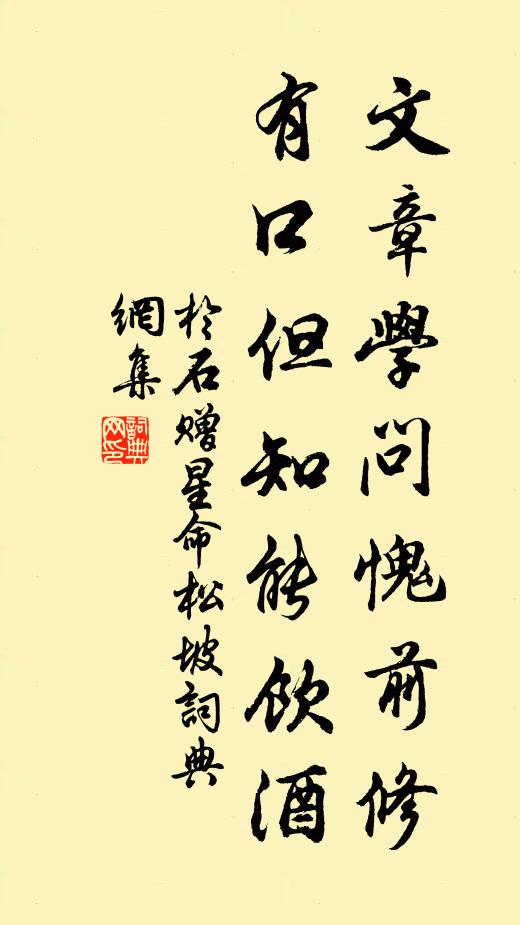 文章學問愧前修
有口但知能飲酒
於石贈星命松坡詞典
網集
詞典
网印